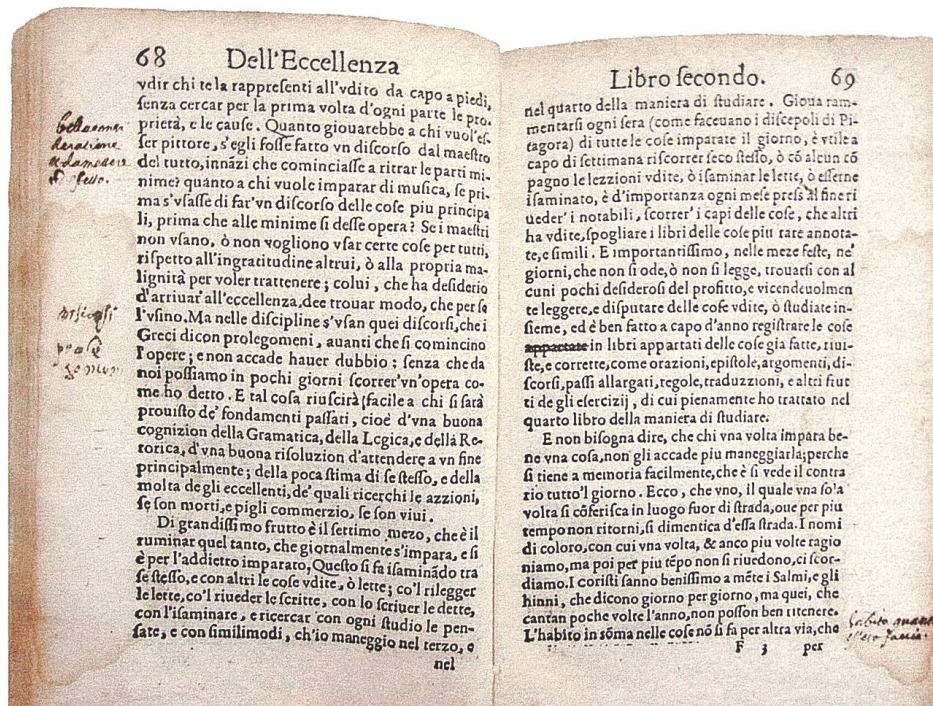 68 Dell'Eccellenza
vdir chi te la rappresenti all'vdito da capo a piedi,
senza cercar per la prima volta d'ogni parte le pro-
prietà, e le cause. Quanto giouarebbe a chi vuol'es-
ser pittore, s'egli fosse fatto vn discorso dal maestro
del tutto, innãzi che cominciasse a ritrar le parti mi-
nime? quanto a chi vuole imparar di musica, se pri-
ma s'vsasse di far'vn discorso delle cose piu principa
li, prima che alle minime si desse opera? Se i maestri
non vsano, ò non vogliono vsar certe cose per tutti,
rispetto all'ingratitudine altrui, ò alla propria ma-
lignità per voler trattenere; colui, che ha desiderio
d'arriuar all'eccellenza, dee trouar modo, che per se
l'vsino. Ma nelle discipline s'vsan quei discorsi, che i
Greci dicon prolegomeni, auanti che si comincino
l'opere; e non accade hauer dubbio: senza che da
noi possiamo in pochi giorni scorrer'vn'opera co-
me ho detto. E tal cosa riuscirà facile a chi si sarà
prouisto de' fondamenti passati, cioè d'vna buona
cognizion della Gramatica, della Logica, e della Re-
torica, d'vna buona risoluzion d'attendere a vn fine
principalmente; della poca stima di se stesso, e della
molta de gli eccellenti, de' quali ricerchi le azzioni,
se son morti, e pigli commerzio, se son viui.
Di grandissimo frutto è il settimo mezo, che è il
ruminar quel tanto, che giornalmente s'impara, e si
è per l'addietro imparato, Questo si fa isaminãdo tra
se stesso, e con altri le cose vdite, ò lette; co'l rilegger
le lette, co'l riueder le scritte, con lo scriuer le dette,
con l'isaminare, e ricercar con ogni studio le pen-
sate, e con similimodi, ch'io maneggio nel terzo, e
nel
Libro secondo. 69
nel quarto della maniera di studiare. Gioua ram-
mentarsi ogni sera (come faceuano i discepoli di Pi-
tagora) di tutte le cose imparate il giorno, è vtile a
capo di settimana riscorrer seco stesso, ò cõ alcun cõ
pagno le lezzioni vdite, ò isaminar le lette, ò esserne
isaminato, è d'importanza ogni mese press'al fine ri
ueder' i notabili, scorrer' i capi delle cose, che altri
ha vdite, spogliare i libri delle cose piu rare annota-
te, e simili. E importantissimo, nelle meze feste, ne'
giorni, che non si ode, ò non si legge, trouarsi con al
cuni pochi desiderosi del profitto, e vicendeuolmen
te leggere, e disputare delle cose vdite, ò studiate in-
sieme, ed è ben fatto a capo d'anno registrare le cose
appartate in libri appartati delle cose gia fatte, riui-
ste, e corrette, come orazioni, epistole, argomenti, di-
scorsi, passi allargati, regole, traduzzioni, e altri frut
ti de gli esercizij, di cui pienamente ho trattato nel
quarto libro della maniera di studiare.
E non bisogna dire, che chi vna volta impara be-
ne vna cosa, non gli accade piu maneggiarla; perche
si tiene a memoria facilmente, che è si vede il contra
rio tutto'l giorno. Ecco, che vno, il quale vna so'a
volta si cõferisca in luogo fuor di strada, oue per piu
tempo non ritorni, si dimentica d'essa strada. I nomi
di coloro, con cui vna volta, & anco piu volte ragio
niamo, ma poi per piu tẽpo non si riuedono, ci scor-
diamo. I coristi sanno benissimo a mẽte i Salmi, e gli
hinni, che dicono giorno per giorno, ma quei, che
cantan poche volte l'anno, non posson ben ritenere.
L'habito in sõma nelle cose nõ si fa per altra via, che
F 3 per